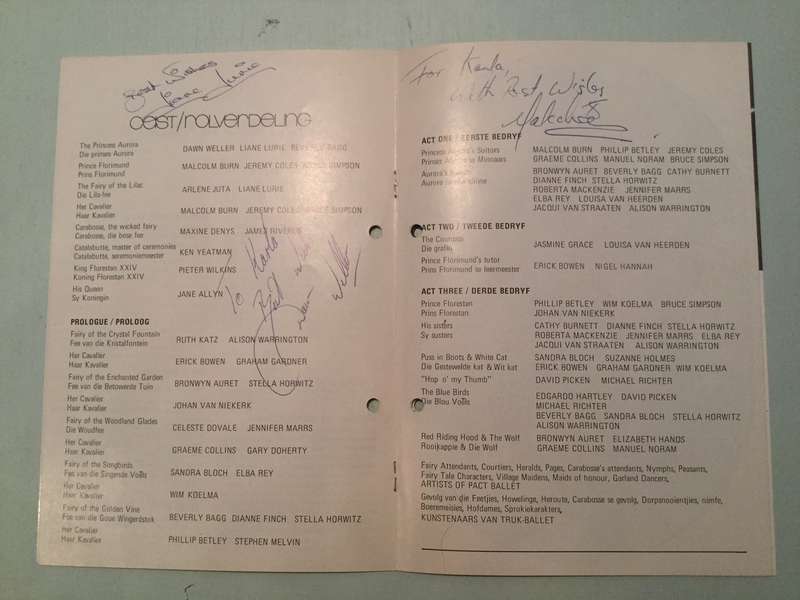 Best Wishes
Liane Lurie
CAST/ROLVERDELING
The Princess Aurora DAWN WELLER LIANE LURIE BEVERLY BAGG
Die prinses Aurora
Prince Florimund MALCOLM BURN JEREMY COLES BRUCE SIMPSON
Prins Florimund
The Fairy of the Lilac ARLENE JUTA LIANE LURIE
Die Lila-fee
Her Cavalier MALCOLM BURN JEREMY COLES BRUCE SIMPSON
Haar Kavalier
Carabosse, the wicked fairy MAXINE DENYS JAMES RIVEROS
Carabosse, die bose fee
Catalabutte, master of ceremonies KEN YEATMAN
Catalabutte, seremoniemeester
King Florestan XXIV PIETER WILKINS
Koning Florestan XXIV
His Queen JANE ALLYN
Sy Koningin
To Karla
Best Wishes
Dawn Weller
PROLOGUE / PROLOOG
Fairy of the Crystal Fountain RUTH KATZ ALISON WARRINGTON
Fee van die Kristalfontein
Her Cavalier ERICK BOWEN GRAHAM GARDNER
Haar Kavalier
Fairy of the Enchanted Garden BRONWYN AURET STELLA HORWITZ
Fee van die Betowerde Tuin
Her Cavalier JOHAN VAN NIEKERK
Haar Kavalier
Fairy of the Woodland Glades CELESTE DOVALE JENNIFER MARRS
Die Woudfee
Her Cavalier GRAEME COLLINS GARY DOHERTY
Haar Kavalier
Fairy of the Songbirds SANDRA BLOCH ELBA REY
Fee van die Singende Voëls
Her Cavalier WIM KOELMA
Haar Kavalier
Fairy of the Golden Vine BEVERLY BAGG DIANNE FINCH STELLA HORWITZ
Fee van die Goue Wingerdstok
Her Cavalier PHILLIP BETLEY STEPHEN MELVIN
Haar Kavalier
For Karla,
With Best Wishes
ACT ONE / EERSTE BEDRYF
Princess Aurora's Suitors MALCOLM BURN PHILLIP BETLEY JEREMY COLES
Prinses Aurora se Minnaars GRAEME COLLINS MANUEL NORAM BRUCE SIMPSON
Aurora's friends BRONWYN AURET BEVERLY BAGG CATHY BURNETT
Aurora se vriendinne DIANNE FINCH STELLA HORWITZ
ROBERTA MACKENZIE JENNIFER MARRS
ELBA REY LOUISA VAN HEERDEN
JACQUI VAN STRAATEN ALISON WARRINGTON
ACT TWO / TWEEDE BEDRYF
The Countess JASMINE GRACE LOUISA VAN HEERDEN
Die gravin
Prince Florimund's tutor ERICK BOWEN NIGEL HANNAH
Prins Florimund se leermeester
ACT THREE / DERDE BEDRYF
Prince Florestan PHILLIP BETLEY WIM KOELMA BRUCE SIMPSON
Prins Florestan JOHAN VAN NIEKERK
His sisters CATHY BURNETT DIANNE FINCH STELLA HORWITZ
Sy susters ROBERTA MACKENZIE JENNIFER MARRS ELBA REY
JACQUI VAN STRAATEN ALISON WARRINGTON
Puss in Boots & White Cat SANDRA BLOCH SUZANNE HOLMES
Die Gestewelde kat & Wit kat ERICK BOWEN GRAHAM GARDNER WIM KOELMA
"Hop o' my Thumb" DAVID PICKEN MICHAEL RICHTER
The Blue Birds EDGARDO HARTLEY DAVID PICKEN
Die Blou Voëls MICHAEL RICHTER
BEVERLY BAGG SANDRA BLOCH STELLA HORWITZ
ALISON WARRINGTON
Red Riding Hood & The Wolf BRONWYN AURET ELIZABETH HANDS
Rooikappie & Die Wolf GRAEME COLLINS MANUEL NORAM
Fairy Attendants, Courtiers, Heralds, Pages, Carabosse's attendants, Nymphs, Peasants,
Fairy Tale Characters, Village Maidens, Maids of honour, Garland Dancers,
ARTISTS OF PACT BALLET
Gevolg van die Feetjies, Howelinge, Heroute, Carabosse se gevolg, Dorpsnooientjies, nimfe,
Boeremeisies, Hofdames, Sprokiekarakters,
KUNSTENAARS VAN TRUK-BALLET